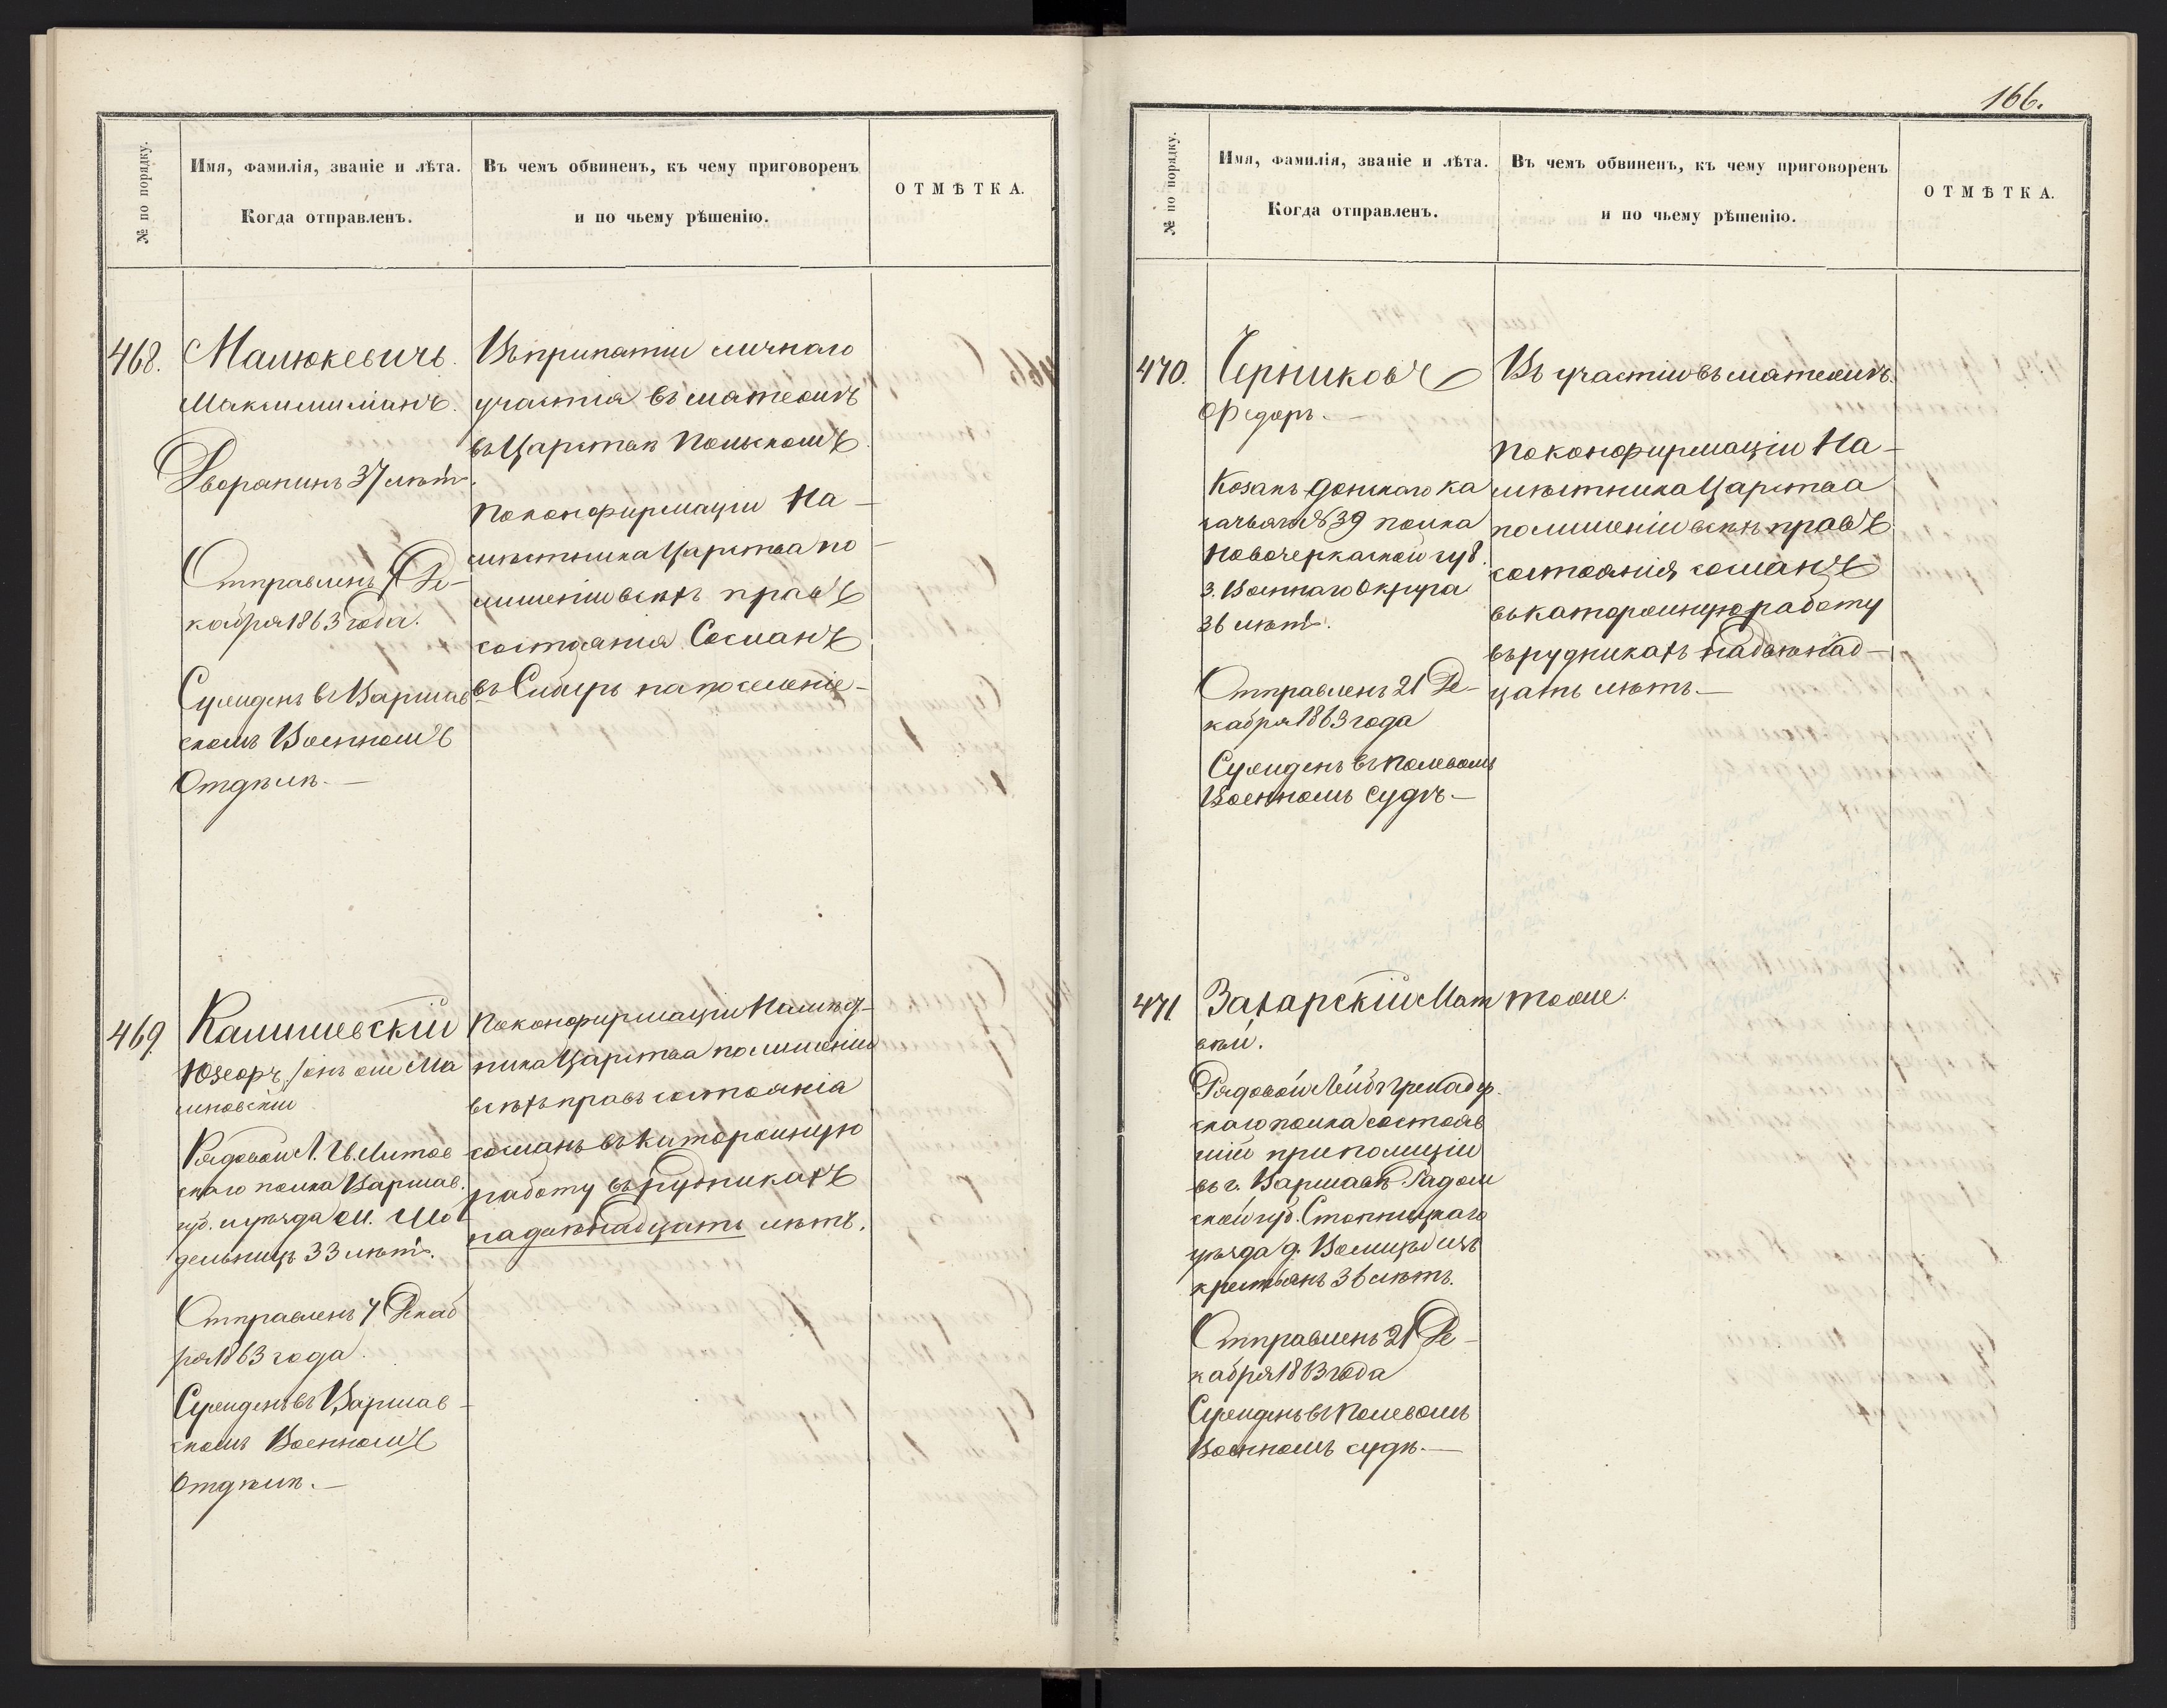 № по порядку.
Имя, фамилія, званіе и лѣта.
Когда отправленъ.
Въ чемъ обвиненъ, къ чему приговоренъ
и по чьему рѣшенію.
ОТМѢТКА.
468.
Малюкевичъ.
Максимиліанъ.
Дворянинъ 37 лѣтъ.
Отправленъ 7 Де-
кабря 1863 года.
Сужденъ въ Варшав
скомъ Военномъ
Отдѣлѣ.—
Въ принятіи личнаго
участія въ мятежѣ
въ Царствѣ Польскомъ.
По конфирмаціи На-
мѣстника Царства по-
лишеніи всѣхъ правъ
состоянія Сосланъ
въ Сибирь на поселеніе-
469.
Калишевскій
Юзефъ, /онъ же Ма
линовскій
Рядовой Л. Гв. Литов
скаго полка Варшав.
губ. и уѣзда
дельницъ 33 лѣтъ.
Отправленъ 7 Декаб
ря 1863 года.
Сужденъ въ Варшав-
скомъ Военномъ
Отдѣлѣ.—
По конфирмаціи Намѣст-
ника Царства по лишеніи
всѣхъ правъ состоянія
сосланъ въ каторжную
работу въ рудникахъ
на двѣнадцать лѣтъ.
166.
№ по порядку.
Имя, фамилія, званіе и лѣта.
Когда отправленъ.
Въ чемъ обвиненъ, къ чему приговоренъ
и по чьему рѣшенію.
ОТМѢТКА.
470.
Черниковъ
Федоръ.—
Козакъ Донскаго ка
зачьяго № 39 полка
Новочеркаской губ.
3. Военнаго Округа
36 лѣтъ.
Отправленъ 21 Де-
кабря 1863 года
Сужденъ въ Полевомъ
Военномъ судѣ.—
Въ участіи въ мятежѣ.
По конфирмаціи На-
мѣстника Царства
по лишеніи всѣхъ правъ
состоянія сосланъ
въ каторжную работу
въ рудникахъ на двѣнад-
цать лѣтъ.—
471.
Захарскій Мат
вѣй.
Рядовой Лейбъ Гренадер.
скаго полка состояв
шій при полиціи
въ г. Варшавѣ. Радом
ской губ. Стопницкаго
уѣзда д. изъ
крестьянъ 36 лѣтъ.
Отправленъ 21 Де-
кабря 1863 года
Сужденъ въ Полевомъ
Военномъ судѣ.—
тоже.